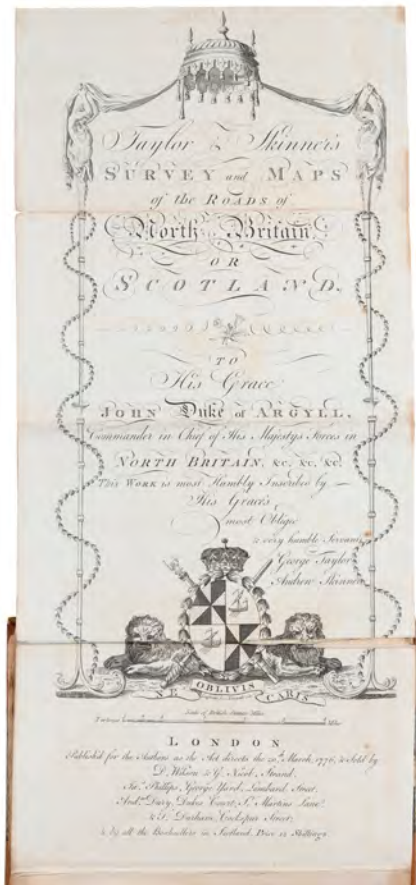 Taylor & Skinner's
SURVEY and MAPS
of the ROADS of
North Britain
OR
SCOTLAND.
TO
His Grace
JOHN Duke of ARGYLL,
Commander in Chief of His Majestys Forces in
NORTH BRITAIN, &c, &c, &c.
This WORK is most Humbly Inscribed by
His Grace's
most Oblig'd
& very humble Servants
George Taylor
Andrew Skinner
NE OBLIVIS CARIS
Scale of British Statute Miles
LONDON
Published for the Authors as the Act directs the 20th March, 1776, & Sold by
D. Wilson & G. Nicol, Strand,
Jas. Phillips, George Yard, Lombard Street,
Andw. Dury, Dukes Court, St. Martins Lane,
& T. Durham, Cockspur Street;
& by all the Booksellers in Scotland. Price 12 Shillings.